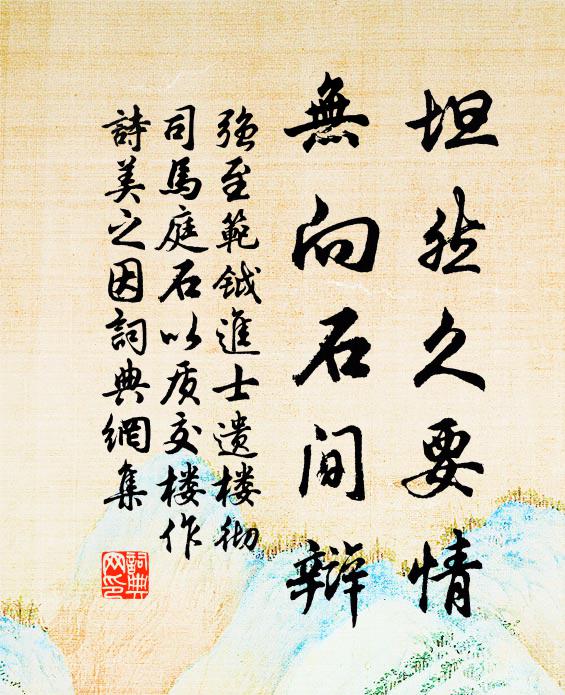 坦然久要情
無向石間辯
强至範鉞進士遺楼彻
司馬庭石以质交楼作
詩美之因詞典網集
詞典網印